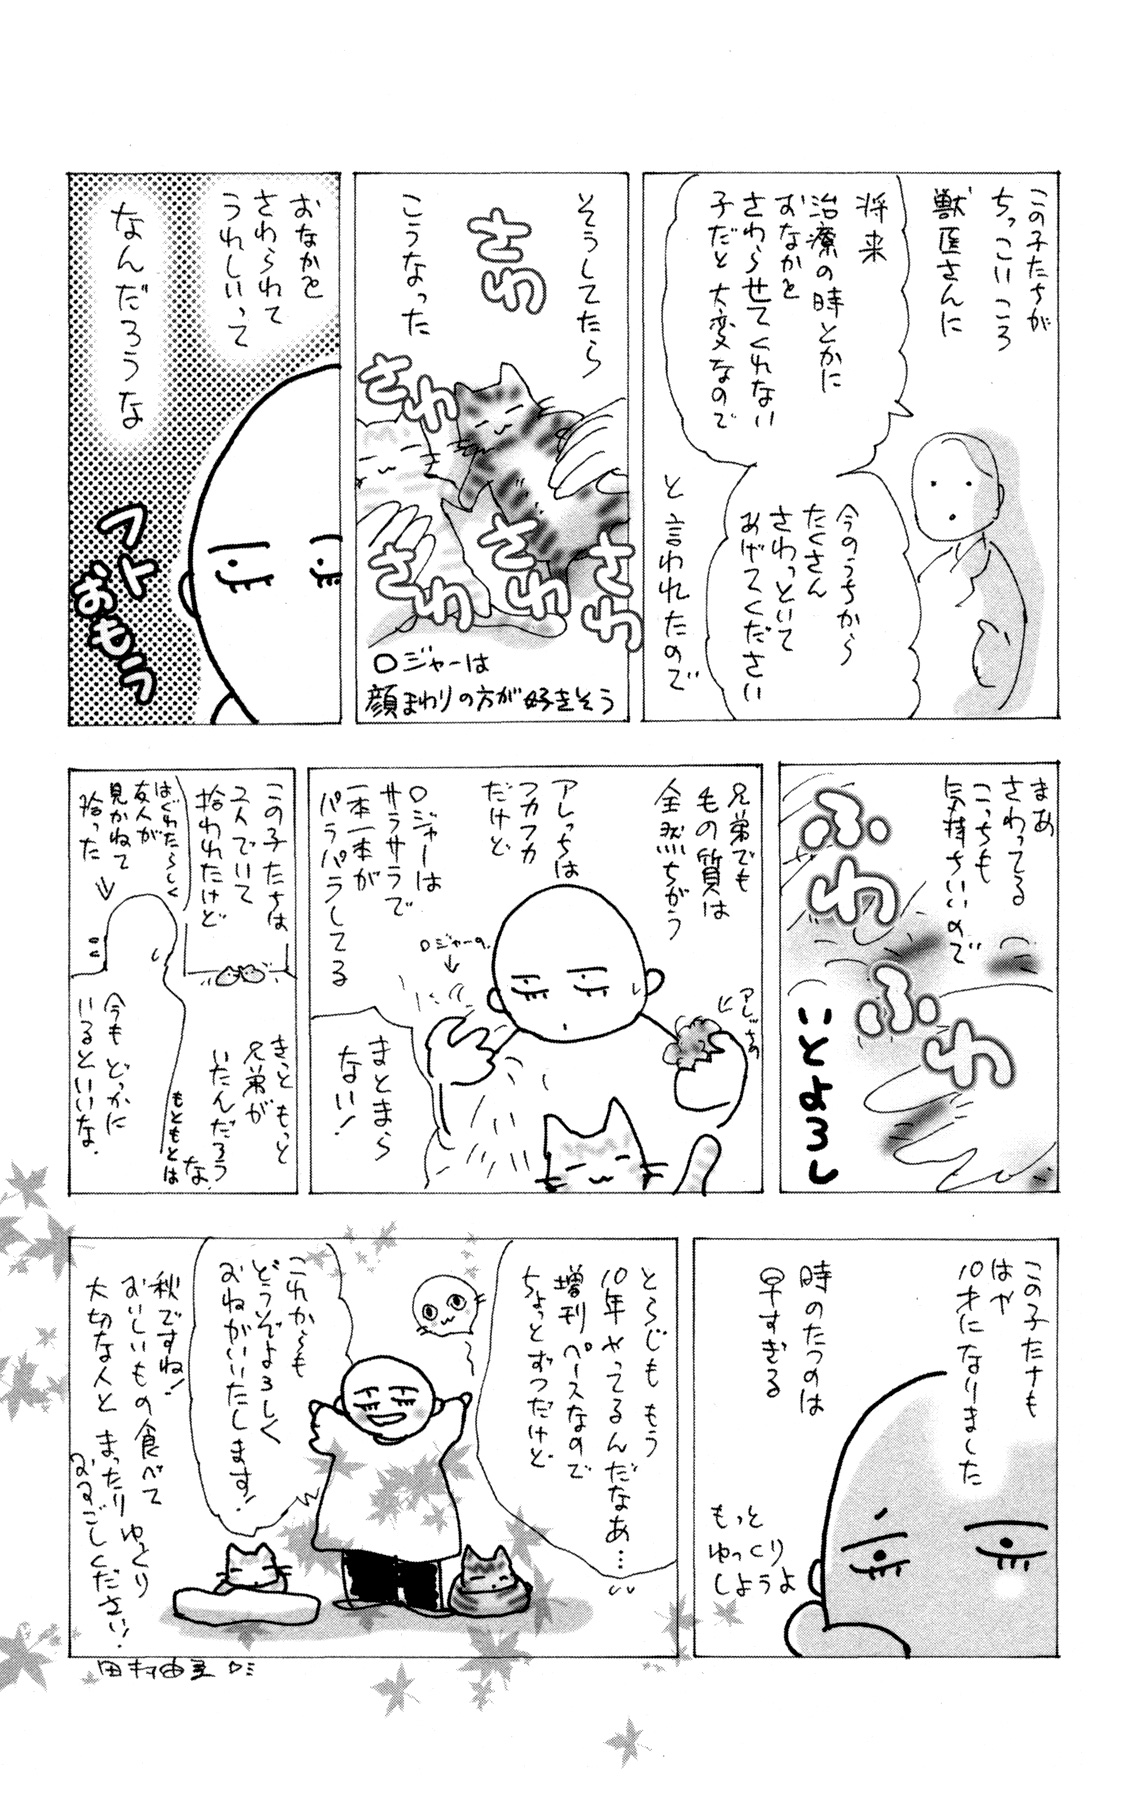 この子たちが
ちっこいころ
獣医さんに
将来
治療の時とかに
おなかを
さわらせてくれない
子だと大変なので
今のうちから
たくさん
さわっといて
あげてください
と言われたので
そうしてたら
さわ
こうなった
さわ
さわ
さわ
さわ
ロジャーは
顔まわりの方が好きそう
おなかを
さわられて
うれしいって
なんだろうな
フト
おもう
まあ
さわってる
こっちも
気持ちいいので
ふわ
ふわ
いとよろし
兄弟でも
毛の質は
全然ちがう
アレっちは
フカフカ
だけど
ロジャーは
サラサラで
一本一本が
パラパラしてる
アレっちの
ロジャーの
まとまら
ない!
この子たちは
2人でいて
拾われたけど
はぐれたらしく
友人が
見かねて
拾った
きっともっと
兄弟が
いたんだろう
な
もともとは
今もどっかに
いるといいな
この子たちも
はや
10才になりました
時のたつのは
早すぎる
もっと
ゆっくり
しようよ
とらじももう
10年やってるんだなあ…
増刊ペースなので
ちょっとずつだけど
これからも
どうぞよろしく
おねがいいたします!
秋ですね!
おいしいもの食べて
大切な人とまったりゆっくり
おすごしください!
田村由美